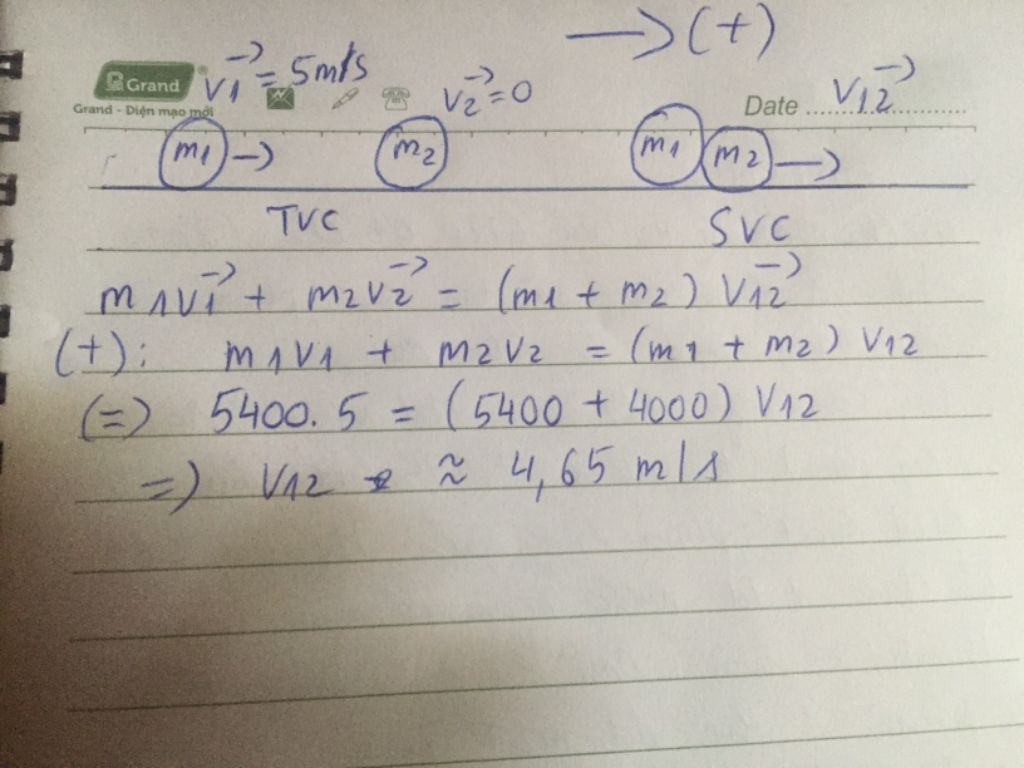 → (+)
Grand V1→ = 5m/s V2→ = 0
Grand - Diện mạo mới Date V12→
m1 → m2 m1 m2 →
TVC SVC
m1V1→ + m2V2→ = (m1 + m2) V12→
(+): m1V1 + m2V2 = (m1 + m2) V12
(=) 5400.5 = (5400 + 4000) V12
=) V12 ≈ 4,65 m/s